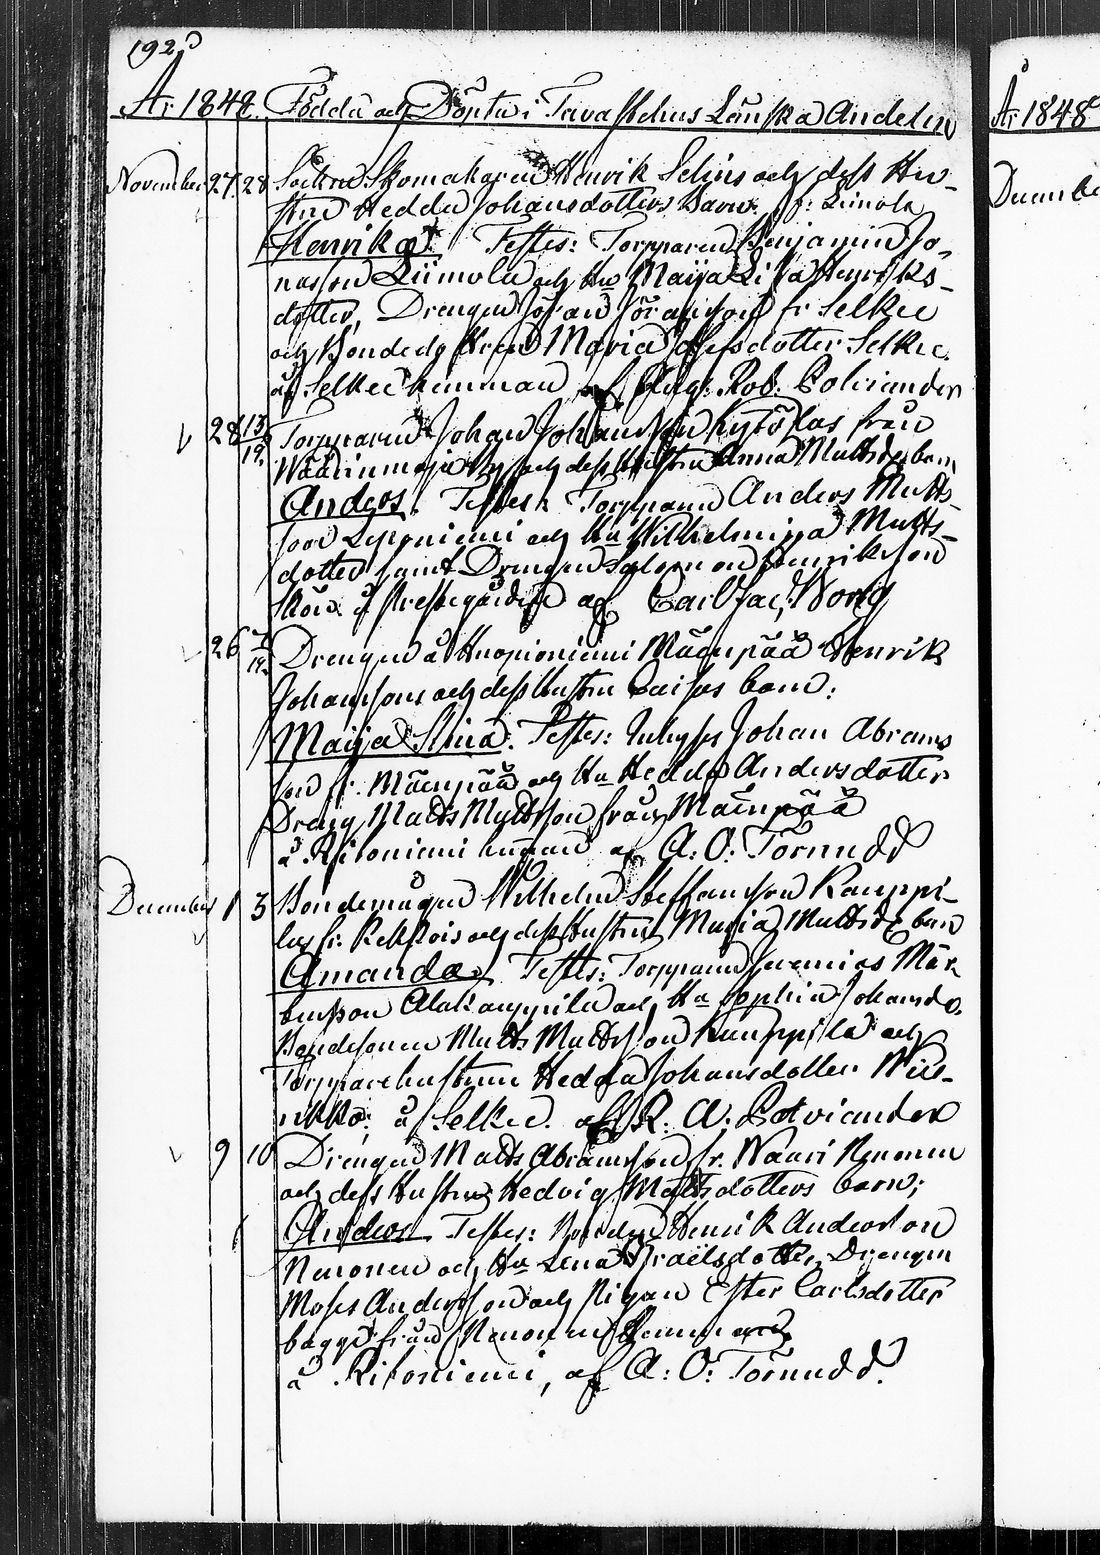 192
År 1848. Födda och Döpta i Tavastehus Länska Andelen
November 27. 28 Sockne Skomakaren Henrik Selins och dess Hu-
stru Hedda Johansdotters Barn. fr: Liimola
Henrika. Testes: Torpparen Benjamin Jo-
nasson Liimola och Hu Maija Lisa Henriks-
dotter, Drengen Johan Johansson fr Selkee
och Bonde Maria dotter Selkee.
å Selkee hemman af Rob. Polviander
28 13/19. Torpparen Johan Johansson Kytölas från
by och dess Hustru Anna Mattsdrs barn,
Anders. Testes: Torpparen Anders Matts-
son Leponiemi och Hu Wilhelmina Matts-
dotter samt Drengen Salomon Henriksson
å Prestegården af Carl Jac: Wong
26 /19. Drengen å Kuopioniemi Mäenpää Henrik
Johanssons och dess Hustru Caisas barn:
Maija Stina. Testes: Inhyses Johan Abrams
son fr. Mäenpää och Hu Hedda Andersdotter
Dreng Matts Mattsson från Mäenpää
å Ritoniemi hemman af A: O: Törnudd
December 1 3 Bondemågen Wilhelm Staffansson Kauppi-
las fr. och dess Hustru Maria Mattsdrs barn
Amanda. Testes: Torpparen Jeremias Mår-
tensson Alakauppila och Hu Sophia Johansdr.
Bondesonen Matts Mattsson Kauppila och
Torpparehustrun Hedda Johansdotter
å Selkee. af R. A. Polviander
9 10 Drengen Matts Abramsson fr. Nenonen
och dess Hustru Hedvig Mattsdotters barn;
Anders. Testes: Bonden Henrik Andersson
Nenonen och Hu Lena Israelsdotter, Drengen
Moses Andersson och Pigan Ester Carlsdotter
bägge från Nenonen Hemman
å Ritoniemi, af A: O: Törnudd.
År 1848
December